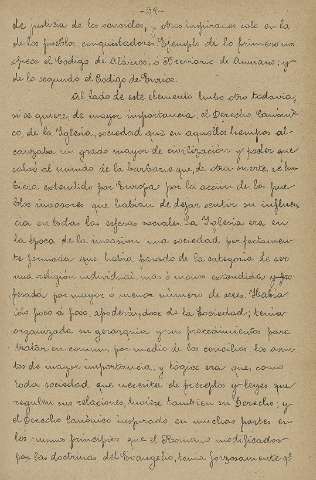 -32-
de justicia de los vencidos, y otros inspirados solo en la
de los pueblos conquistadores. Ejemplo de lo primero nos
ofrece el Código de Alarico, o Breviario de Aniano; y
de lo segundo el Código de Eurico.
Al lado de este elemento hubo otro todavia,
si se quiere de mayor importancia, el Derecho Canóni-
co, de la Iglesia, sociedad que en aquellos tiempos al-
canzaba un grado mayor de civilización y poder que
salvó al mundo de la barbarie que, de otra suerte, se hu-
biera extendido por Europa por la acción de los pue-
blos invasores que habian de dejar sentir su influen-
cia en todas las esferas sociales. La Iglesia era en
la época de la invasion una sociedad perfectamente
formada que habia pasado de la categoria de ser
una religión individual mas ó menos extendida y pro-
fesada por mayor o menor número de seres. Habia
ido poco a poco apoderándose de la Sociedad; tenia
organizada su gerarquia y su procedimiento para
tratar en comun, por medio de los concilios los asun-
tos de mayor importancia, y toda vez era que, como
toda sociedad que necesita de preceptos y leyes que
regulen sus relaciones, tuviese tambien su Derecho; y
el Derecho Canónico inspirado en muchas partes en
los mismos principios que el Romano modificados
por las doctrinas del Evangelio, tenia forzosamente q